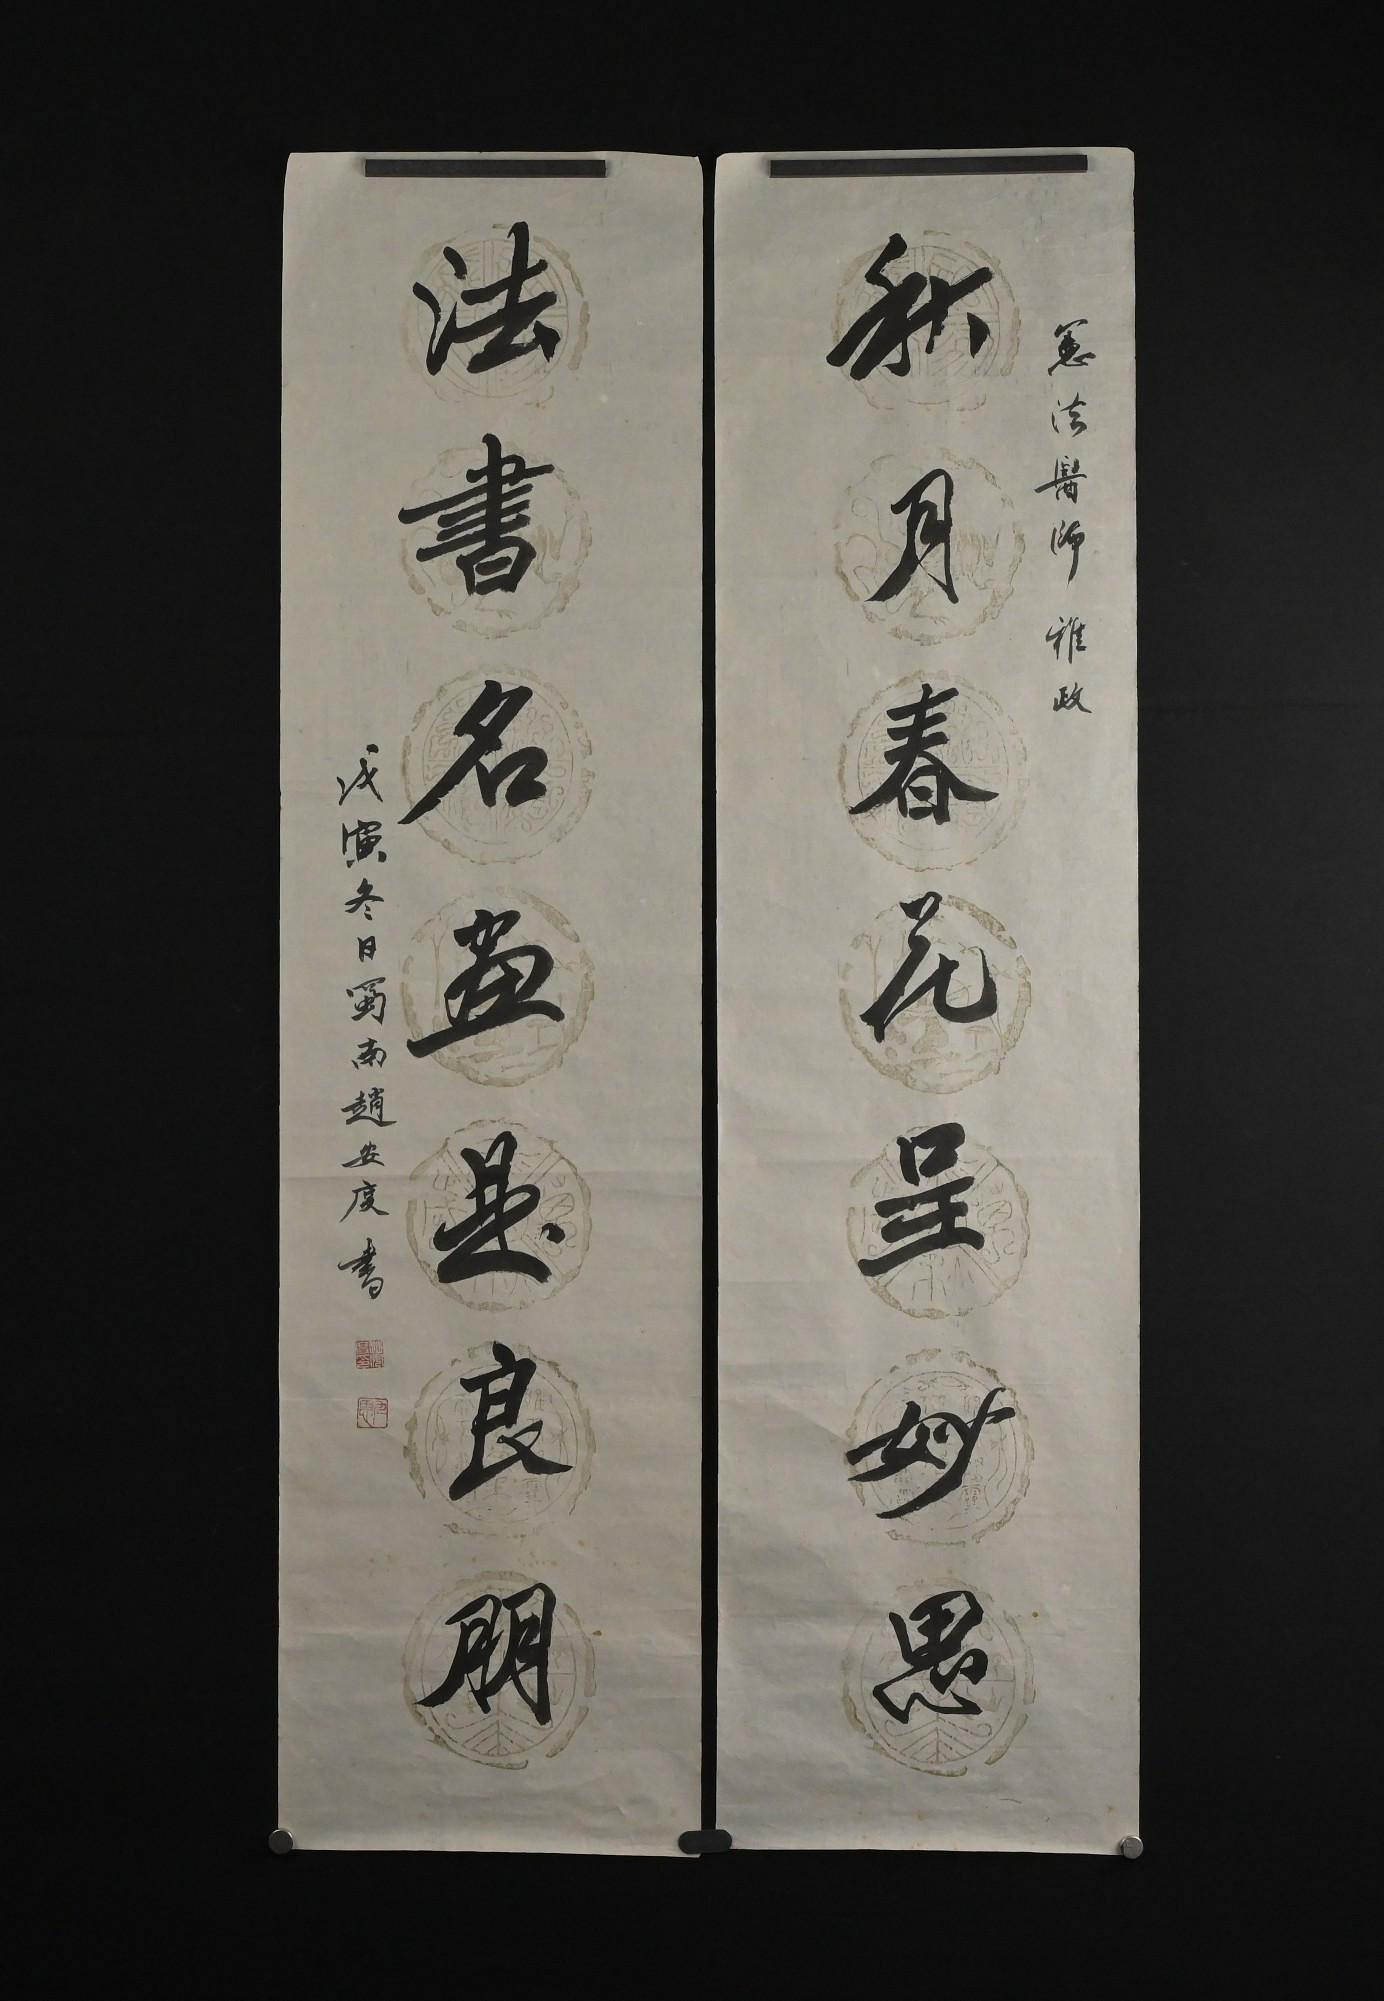 憲法醫師雅政
秋月春花呈妙思
法書名畫是良朋
戊寅冬日蜀南趙安度書